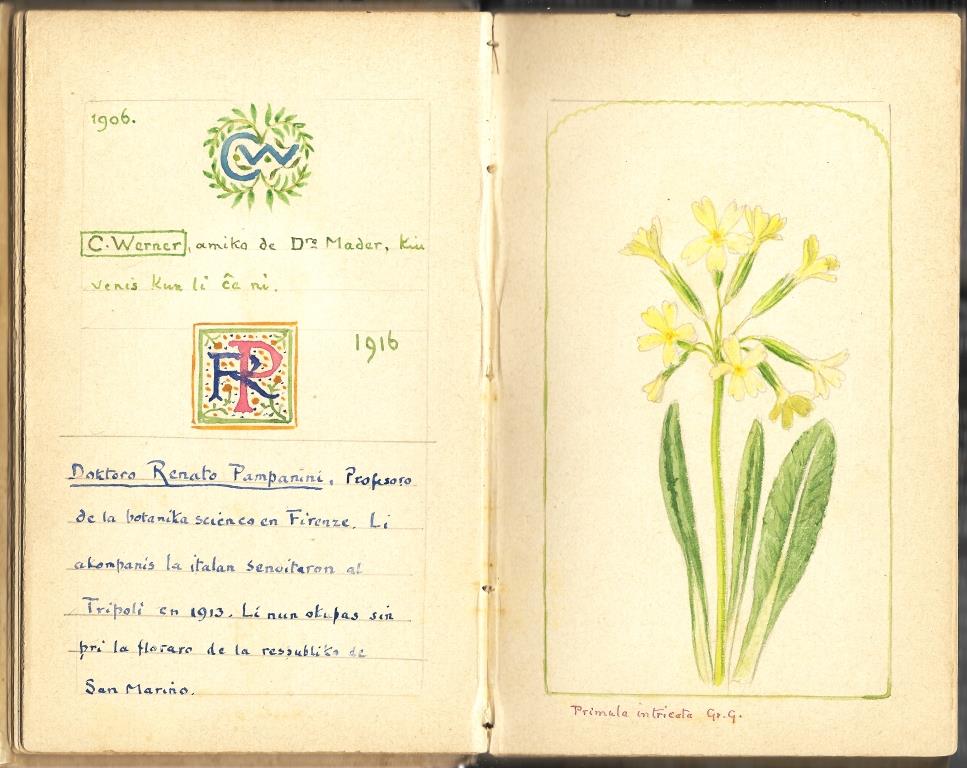 1906.
CW
C. Werner, amiko de Dro Mader, kiu
venis kun li ĉe ni.
RP
1916
Doktoro Renato Pampanini, Profesoro
de la botanika scienco en Firenze. Li
akompanis la italan
Tripoli en 1913. Li nun okupas sin
pri la floraro de la respubliko de
San Marino.
Primula intricata Gr. G.